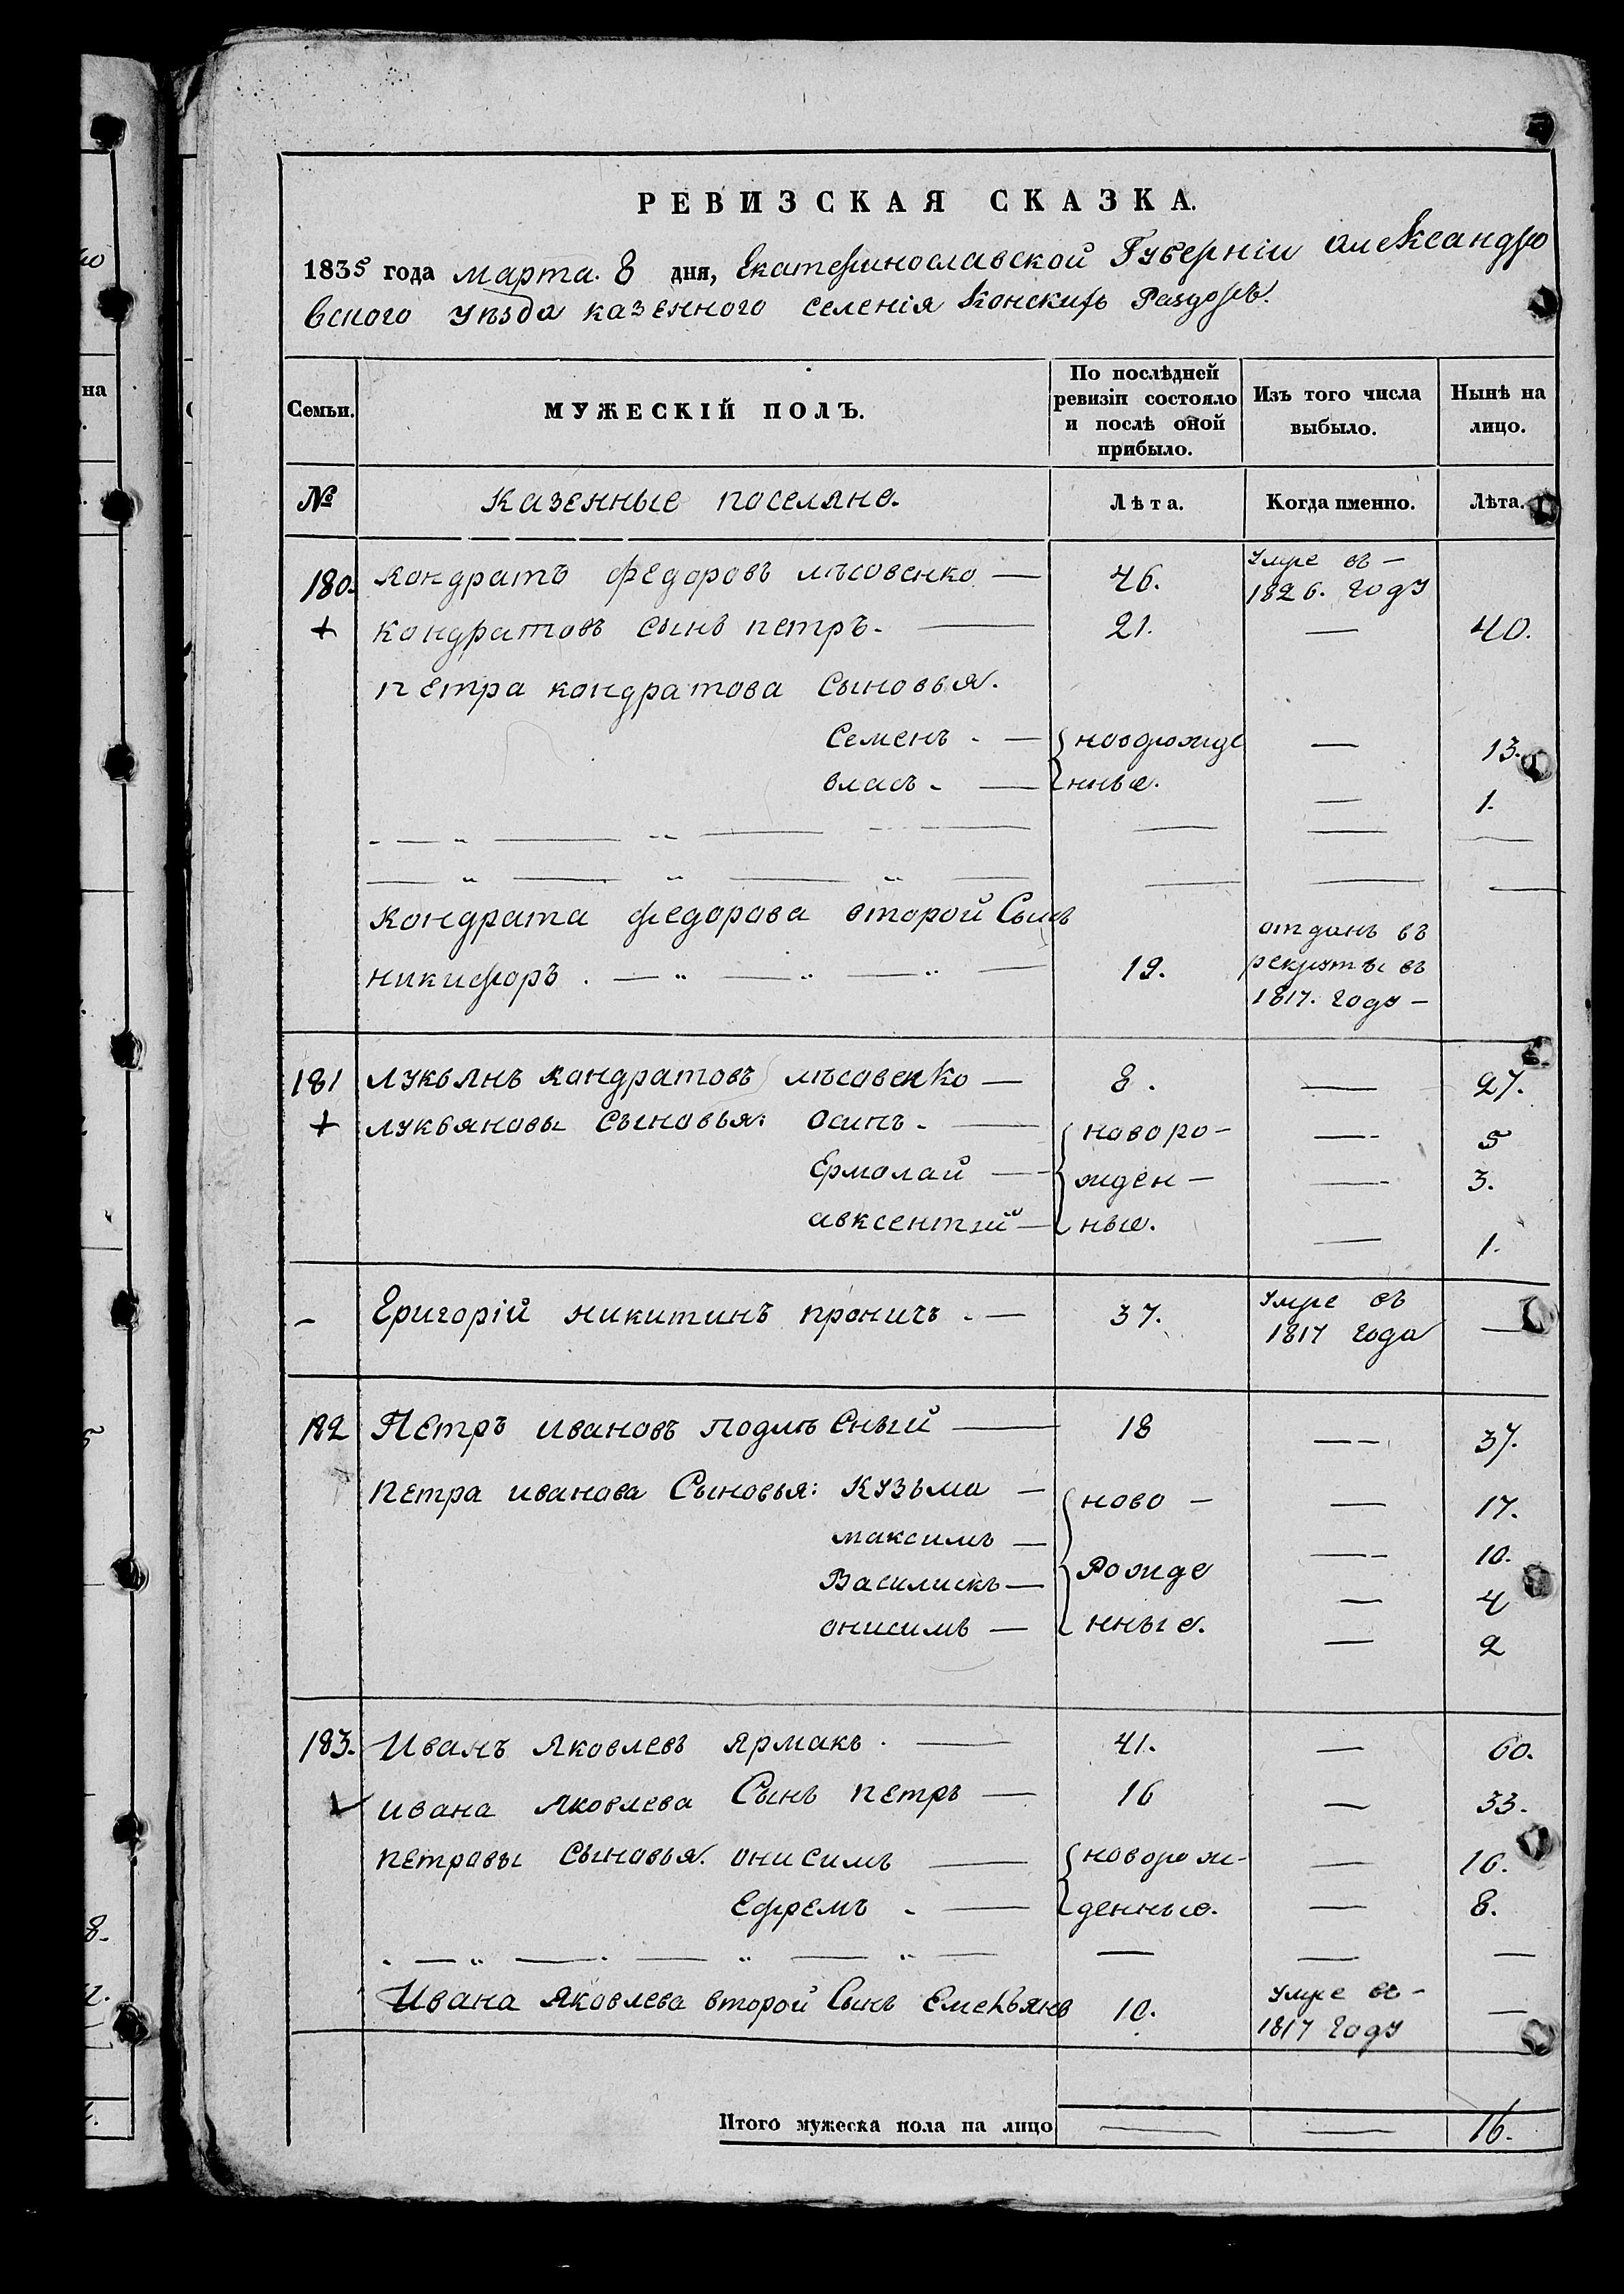 РЕВИЗСКАЯ СКАЗКА.
1835 года марта 8 дня, Екатеринославской Губерніи Александро
вского Уѣзда казенного селенія Конскихъ Раздоръ.
Семьи. МУЖЕСКІЙ ПОЛЪ. По послѣдней ревизіи состояло и послѣ оной прибыло. Изъ того числа выбыло. Нынѣ на лицо.
№ Казенные поселяне. Лѣта. Когда именно. Лѣта.
180. Кондратъ федоровъ лѣсовенко — 46. Умре въ — 1826. году
+ Кондратовъ сынъ петръ. — 21. — 40.
петра кондратова сыновья.
Семенъ. — новорожде — 13.
власъ. — нные. — 1.
Кондрата федорова второй Сынъ
никифоръ. — 19. отданъ въ рекруты въ 1817. году —
181 лукьянъ кондратовъ лѣсовенко — 8. — 27.
+ лукьяновы сыновья: осипъ. — новоро — 5
Ермолай — жден — 3.
авксентий — ные. — 1.
– Григорій никитинъ проничъ. — 37. Умре въ 1817 года —
182 Петръ ивановъ подлѣсный — 18 — 37.
петра иванова Сыновья: кузьма — ново — 17.
максимъ — 10.
Василискъ — Рожде — 4
онисимъ — нные. — 2
183. Иванъ Яковлевъ ярмакъ. — 41. — 60.
ивана Яковлева Сынъ петръ — 16 — 33.
петровы сыновья. онисимъ — новорож- — 16.
Ефремъ. — денные. — 8.
Ивана Яковлева второй Сынъ Емельянъ 10. умре въ — 1817 году —
Итого мужеска пола на лицо — — 16.
на
8.